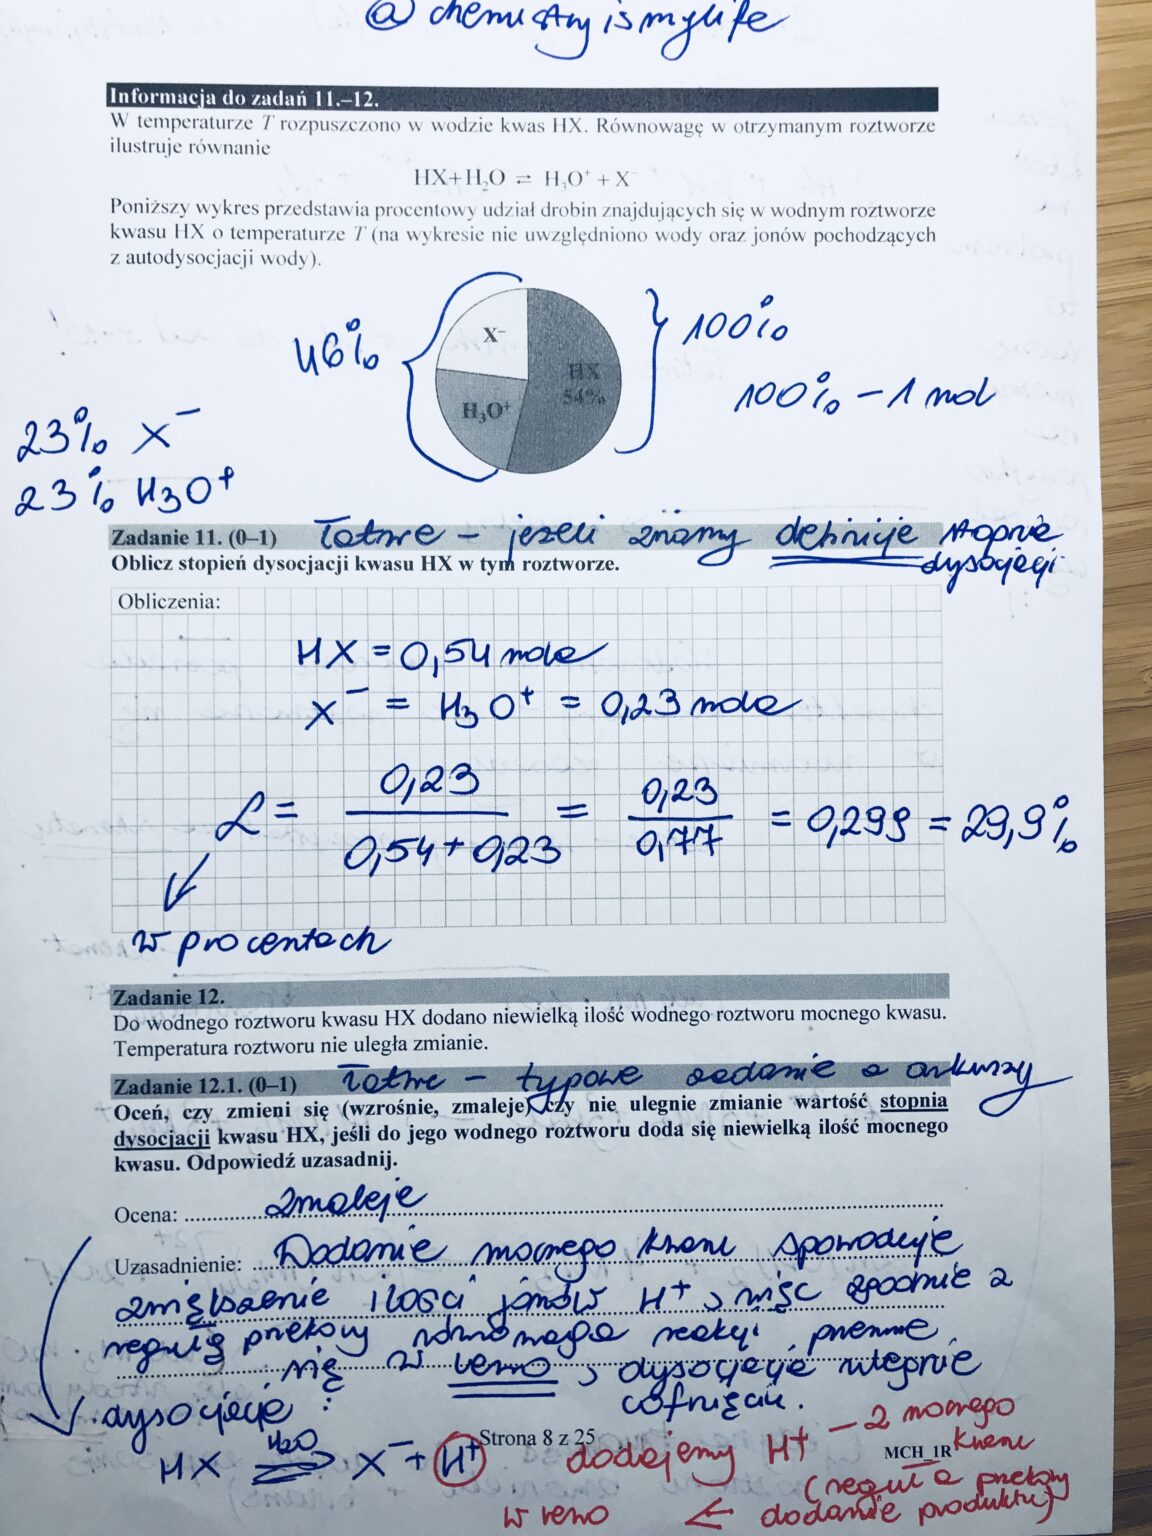 @ chemistryismylife
Informacja do zadań 11.–12.
W temperaturze T rozpuszczono w wodzie kwas HX. Równowagę w otrzymanym roztworze
ilustruje równanie
HX+H₂O ⇄ H₃O⁺ + X⁻
Poniższy wykres przedstawia procentowy udział drobin znajdujących się w wodnym roztworze
kwasu HX o temperaturze T (na wykresie nie uwzględniono wody oraz jonów pochodzących
z autodysocjacji wody).
46%
X⁻
HX
54%
H₃O⁺
100%
100% – 1 mol
23% X⁻
23% H₃O⁺
Zadanie 11. (0–1) Łatwe – jeżeli znamy definicje stopnia
dysocjacji
Oblicz stopień dysocjacji kwasu HX w tym roztworze.
Obliczenia:
HX = 0,54 mola
X⁻ = H₃O⁺ = 0,23 mola
α = 0,23 / 0,54 + 0,23 = 0,23 / 0,77 = 0,299 = 29,9%
w procentach
Zadanie 12.
Do wodnego roztworu kwasu HX dodano niewielką ilość wodnego roztworu mocnego kwasu.
Temperatura roztworu nie uległa zmianie.
Zadanie 12.1. (0–1) Łatwe – typowe zadanie z arkuszy
Oceń, czy zmieni się (wzrośnie, zmaleje) czy nie ulegnie zmianie wartość stopnia
dysocjacji kwasu HX, jeśli do jego wodnego roztworu doda się niewielką ilość mocnego
kwasu. Odpowiedź uzasadnij.
Ocena: zmaleje
Uzasadnienie: Dodanie mocnego kwasu spowoduje
zwiększenie ilości jonów H⁺, więc zgodnie z
regułą przekory równowaga reakcji
się w lewo, dysocjacja ulegnie
cofnięciu.
dysocjacja:
HX ⇄ H₂O X⁻ + H⁺
Strona 8 z 25
MCH_1R
dodajemy H⁺ – z mocnego
kwasu
(reguła przekory
w lewo ← dodanie produktu)